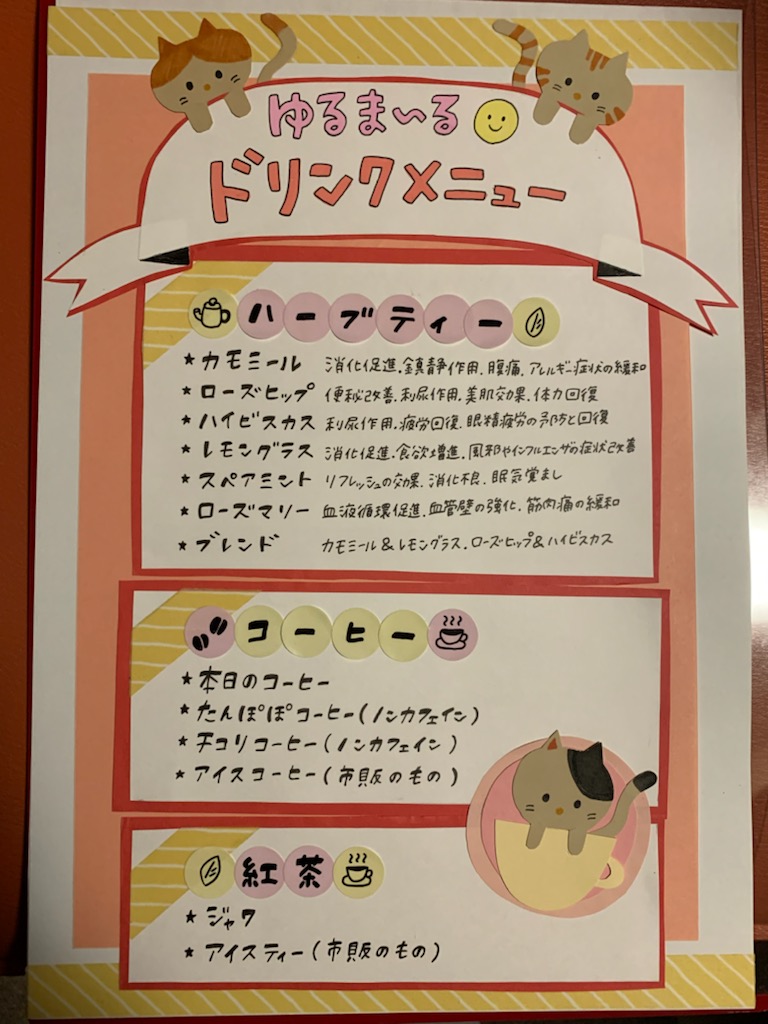 ゆるま~る
ドリンクメニュー
ハーブティー
★カモミール 消化促進.鎮静作用.腹痛.アレルギー症状の緩和
★ローズヒップ 便秘改善.利尿作用.美肌効果.体力回復
★ハイビスカス 利尿作用.疲労回復.眼精疲労の予防と回復
★レモングラス 消化促進.食欲増進.風邪やインフルエンザの症状改善
★スペアミント リフレッシュの効果.消化不良.眠気覚まし
★ローズマリー 血液循環促進.血管壁の強化.筋肉痛の緩和
★ブレンド カモミール&レモングラス.ローズヒップ&ハイビスカス
コーヒー
★本日のコーヒー
★たんぽぽコーヒー(ノンカフェイン)
★チコリコーヒー(ノンカフェイン)
★アイスコーヒー(市販のもの)
紅茶
★ジャワ
★アイスティー(市販のもの)